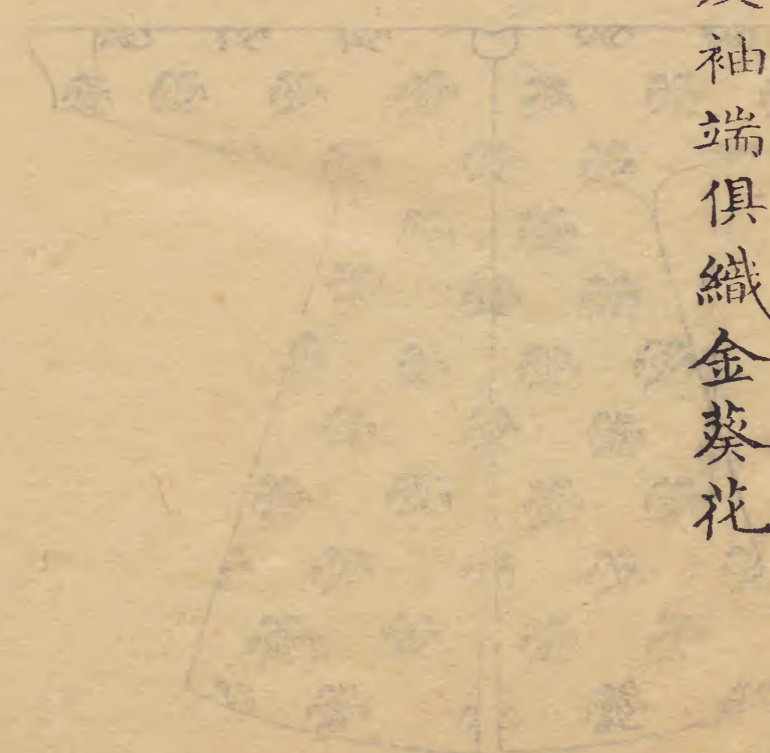 袖端俱織金葵花